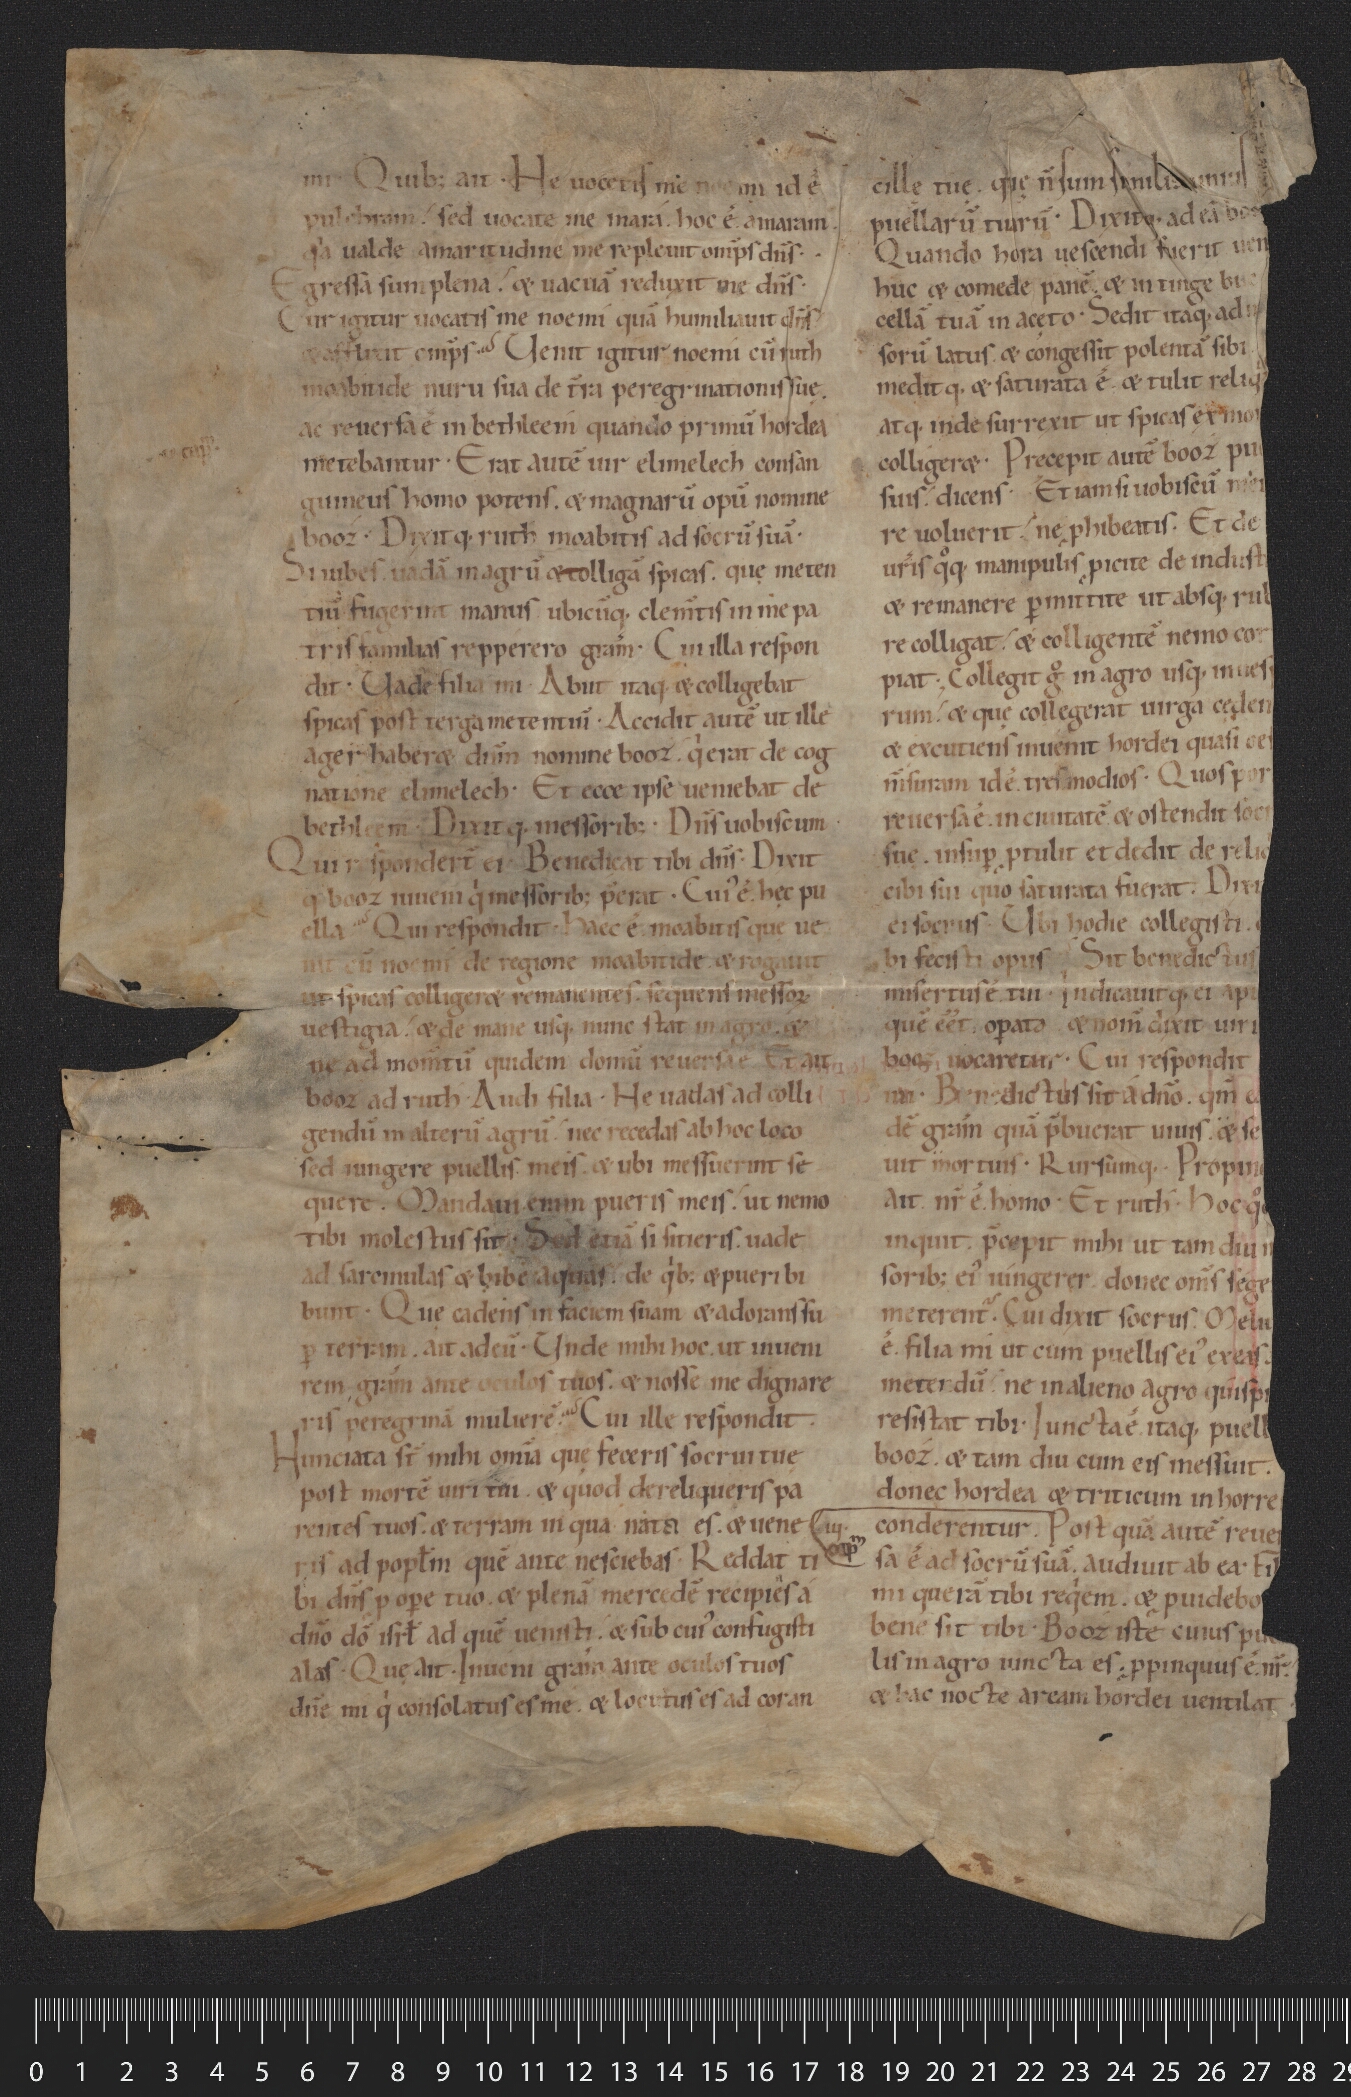 mi· Quib; ait· Ne uocetis me noemi id ē
pulchram. sed uocate me mará. hoc ē amaram.
q̓a ualde amaritudine me repleuit omp̄s dn̄s·
Egressa sum plena. & uacuā reduxit me dn̄s·
Cur igitur uocatis me noemi quā humiliauit dn̄s
& afflixit omp̄s. Uenit igitur noemi cū ruth
moabitide nuru sua de tr̄a peregrinationis suę.
ac reuersa ē in bethleem quando primū hordea
metebantur· Erat autē uir elimelech consan
guineus homo potens. & magnarū opū nomine
booz· Dixitq. ruth moabitis ad socrū suā·
Si iubes. uadā in agrū & colligā spicas. quę meten
tiū fugerint manus. ubicūq. clem̄tis in me pa
tris familias repperero grām· Cui illa respon
dit· Uade filia mi· Abiit itaq. & colligebat
spicas post terga metentiū· Accidit autē ut ille
ager haber& dn̄m nomine booz. q̓ erat de cog
natione elimelech· Et ecce ipse ueniebat de
bethleem· Dixitq. messorib;· Dn̄s uobiscum·
Qui respondert̄ ei· Benedicat tibi dn̄s· Dixit
q. booz iuueni q̓ messorib; p̄erat· Cui' ē hęc pu
ella· Qui respondit· Haec ē moabitis quę ue
nit cū noemi de regione moabitide. & rogauit
ut spicas colliger& remanentes. sequens messoꝝ
uestigia. & de mane usq. nunc stat in agro. &
ne ad mom̄tū quidem domū reuersa ē· Et ait
booz ad ruth· Audi filia· Ne uadas ad colli
gendū in alterū agrū. nec recedas ab hoc loco
sed iungere puellis meis. & ubi messuerint se
quere. Mandaui enim pueris meis. ut nemo
tibi molestus sit· Sed etiā si sitieris. uade
ad sarcinulas & bibe aquas. de q̓b; & pueri bi
bunt· Que cadens in faciem suam & adorans su
ꝑ terram. ait ad eū· Unde mihi hoc. ut inueni
rem grām ante oculos tuos. & nosse me dignare
ris peregrinā mulierē. Cui ille respondit.
Nunciata st̄ mihi om̄ia quę feceris socrui tuę
post mortē uiri tui. & quod dereliqueris pa
rentes tuos. & terram in qua nata es. & uene
ris ad popl̄m quē ante nesciebas· Reddat ti
bi dn̄s p opę tuo. & plenā mercedē recipies a
dn̄o dō isrl̄ ad quē uenisti. & sub cui' confugisti
alas· Quę ait· Inueni grām ante oculos tuos
dn̄e mi q̓ consolatus es me. & locutus es ad cor an
cillę tuę. quę n̄ sum similis unius
puellarū tuarū· Dixitq. ad eā booz
Quando hora uescendi fuerit uen
huc & comede panē. & intinge buc
cellā tuā in aceto· Sedit itaq. ad
sorū latus. & congessit polentā sibi.
meditq. & saturata ē. & tulit reliq
atq. inde surrexit ut spicas ex mo
colliger&· Precepit autē booz pu
suis. dicens· Etiam si uobiscū me
re uoluerit. ne phibeatis· Et de
ur̄is qoq. manipulis picite de indust
& remanere ꝑmittite ut absq. rub
re colligat. & colligentē nemo cor
piat· Collegit g̊ in agro usq. in ues
rum. & quę collegerat uirga cędens
& excutiens inuenit hordei quasi oe
m̄suram id ē tres modios· Quos por
reuersa ē in ciuitatē & ostendit soc
suę. insuꝑ ptulit et dedit de reliq
cibi sui quo saturata fuerat. Dixi
ei socrus· Ubi hodie collegisti.
bi fecisti opus· Sit benedictus
misertus ē tui· Indicauitq. ei ap
quē eēt oꝑata & nom̄ dixit uiri
booz uocaretur· Cui respondit
mi· Benedictus sit a dn̄o. qm̄ ea
dē grām quā p̄buerat uiuis. & se
uit mortuis· Rursumq. Propin
ait nr̄ ē homo· Et ruth· Hoc qo
inquit. p̄cepit mihi ut tam diu
sorib; ei' iungerer donec om̄s sege
meterent. Cui dixit socrus· Meliu
ē. filia mi ut cum puellis ei' exeas.
metendū. ne in alieno agro quispi
resistat tibi· Iuncta ē itaq. puell
booz. & tam diu cum eis messuit.
donec hordea & triticum in horre
conderentur. Post quā autē reuer
iii· cap̄m
sa ē ad socrū suā. audiuit ab ea· Fil
mi querā tibi req̓em. & puidebo
bene sit tibi· Booz iste cuius pue
lis in agro iuncta es. ꝓpinquus ē nr̄.
& hac nocte aream hordei uentilat